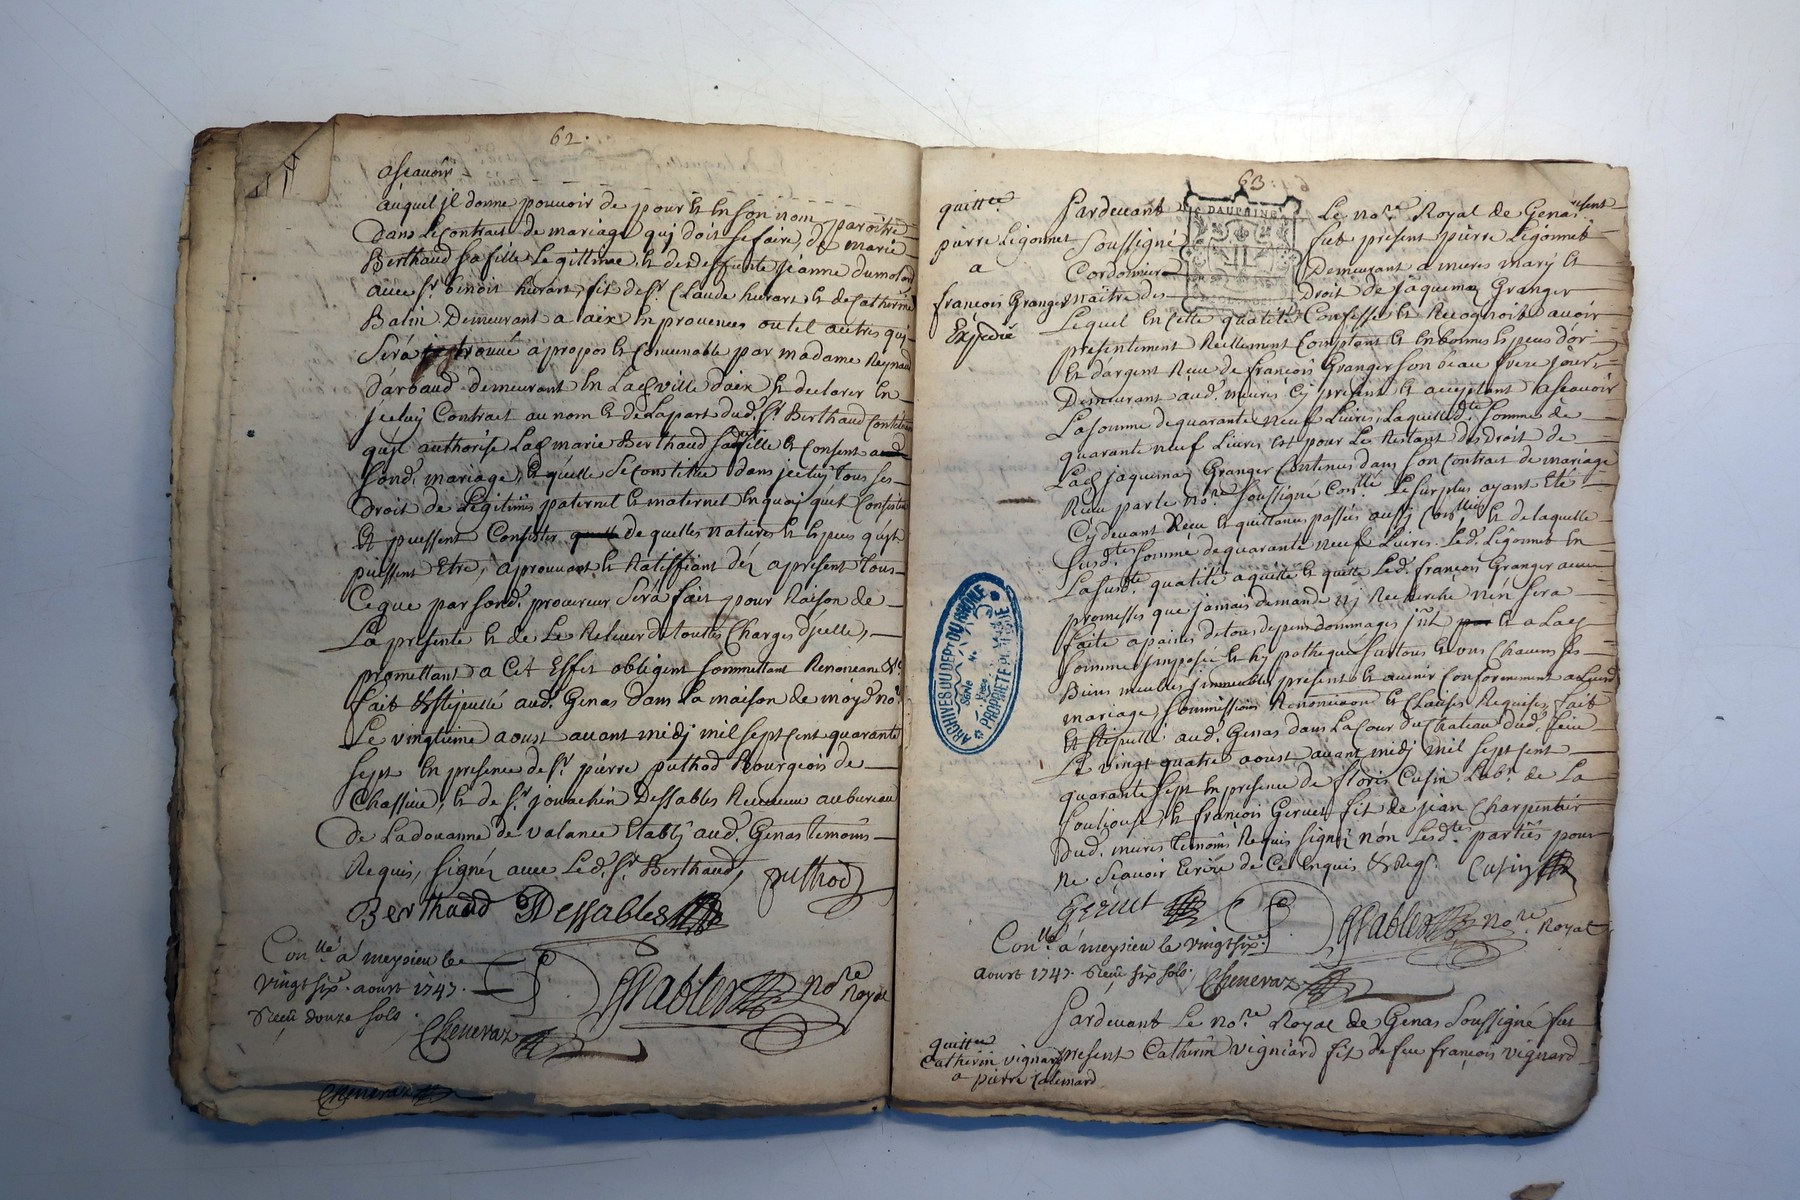 62.
asçavoir
auquel jl donne pouvoir de pour et en son nom paroitre
dans le contrat de mariage quj doit se faire de marie
Berthaud sa fille Legittime et de deffunte jeanne dumolard
avec Sr. benoit hurart, fit de Sr. Claude hurart et de Catherine
Balin Demeurant a aix en provences ou tel autres quj
Sera trouvé apropos et Convenable par madame Reynaud
Darbaud demeurant en Lad. ville daix et declarer en
jceluy Contract au nom et de La part dud. Sr. Berthaud
quil authorise Lad. marie Berthaud sa fille et consent
Sond. mariage, et quelle se constitue dans jceluy tous ses
Droit de Legitimes paternel et maternel en quoy quil Consistent
et puissent Consister de quelles natures et Especes quils
puissent Etre, aprouvant et Ratiffiant dez apresent tous
Ce que par sond. procureur Sera fait pour Raison de
La presente et de Le Relever de toutes Charges djcelle,
promettant a Cet Effet obligent soumettant Renoncant &c.
fait et stipullé aud. Genas dans La maison de moyd. nore.
Le vingtieme aoust avant midj mil sept cent quarante
sept En presence de Sr. pierre puthod Bourgeois de
Chassieu, et de Sr. jouachin Dessables Receveur au bureau
de La douanne de valance Etablj aud. Genas temoins
Requis, signéz avec Led. Sr. Berthaud, puthod
Berthaud Dessables
Conllé. á meyzieu le
vingt six. aoust 1747.
Receu douze sols
Cheneraz
nore. Royal
Cheneraz
63.
DAUPHINÉ
quittce
pierre Ligonnet
a
françois Granger
Expedié
Pardevant Le nore. Royal de Genas
Soussigné fut present pierre Ligonnet
Cordonnier Demeurant a mures mary et
maitre des Droit de jaquema Granger
Lequel En Cette qualité Confesse et Recognoit avoir
presentement Reellement Comptant et En bonnes Especes d'or
et dargent Receu de françois Granger son beau frere
Demeurant aud. mures Cy present et acceptant asçavoir
La somme de quarante neuf Livres, Laquelle dte. somme de
quarante neuf Livres est pour Le Restant des Droit de
Lad. jaquema Granger Contenus dans son Contract de mariage
Receu par le nore. Soussigné Conllé. Le surplus ayant Eté
Cydevant Receu et quittances passées aussy Conllées et de laquelle
susdte. somme de quarante neuf Livres Led. Ligonnet En
La susdte. qualité a quitté et quitte Led. françois Granger avec
promesses que jamais demande nj Recherche n'en sera
faite a paines de tous depens dommages jnt et a Lad.
somme jmposée et hypothequé sur tous et uns Chacuns ses
Biens meubles jmmeubles present et avenir Conformement
mariage, soumissions Renonciaon et Clauses Requises, fait
Et stipullé aud. Genas dans La Cour du Chateau dud. Lieu
Le vingt quatre aoust avant midj mil sept cent
quarante sept En presence de Cusin Labr. de La
et françois Geruit fit de jean Charpentier
Dud. mures temoins Requis signéz non Lesdtes. parties pour
ne Scavoir Ecrire de Ce Enquis & Reqs. Cusin
Geruit
nore. Royal
Conllé. á meyzieu le vingt six.
aoust 1747. Receu six sols. Cheneraz
quittce
Catherin vignard
a pierre
Pardevant Le nore. Royal de Genas Soussigné fut
present Catherin vigniard fit de feu françois vignard
ARCHIVES DU DEPT DU RHÔNE
Série
PROPRIÉTÉ PUBLIQUE